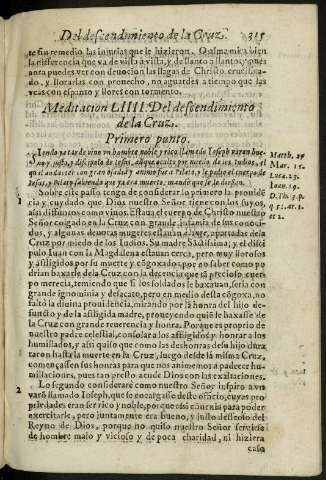 Del descendimiento de la Cruz. 315
te su remedio, las injurias que le hizieron. O alma mia bien
la differencia que va de vista à vista, y de santo a
aora puedes ver con devocion las llagas de Christo crucifica-
do, y llorarlas con provecho, no aguardes a tiempo que las
veas con espanto y llores con tormento.
Meditacion LIIII. Del descendimiento
de la Cruz.
Primero punto.
Venida ya tarde vino un hombre noble y rico llamado Ioseph varon bue-
no y justo, discipulo de Iesus, aunque oculto por miedo de los Iudios, el
qual audacter con gran osadia y animo fue a Pilato, y le pidio el cuerpo de
Iesus, y Pilato sabiendo que ya era muerto, mando que se le diessen.
Matth. 27
Mar. 15.
Luc. 23.
Ioan. 19.
D. Th. 3. p.
q. 51. ar. 1.
et 2.
1
Sobre este passo tengo de considerar lo primero la provi-
dencia y cuydado que Dios nuestro Señor tiene con los suyos,
assi difuntos como vivos. Estava el cuerpo de Christo nuestro
Señor colgado en la Cruz con grande infamia de sus conoci-
dos, y algunos devotos mugeres estavan à lexos, apartadas de la
Cruz por miedo de los Iudios. Su madre Sãtissima, y el disci
pulo Iuan con la Magdalena estavan cerca, pero muy llorosos
y afligidos por su muerte y cõgoxados, por no saber como po
drian baxarle de la Cruz con la decencia que tã precioso cuer-
po merecia, temiendo que si los soldados le baxauan, seria con
grande ignominia y desacato, pero en medio desta cõgoxa, no
faltó la divina providencia, mirando por la honra del hijo de-
functo y de la afligida madre, proveyendo quiẽ le baxasse de
la Cruz con grande reverencia y honra. Porque es proprio de
nuestro padre celestial, consolar a los affligidos y honrar a los
humillados, y assi quiso que como los deshonras de su hijo dura
ron hasta la muerte en la Cruz, luego desde la misma Cruz,
començassen sus honras para que nos animemos a padecer hu-
millaciones, pues tan presto acude Dios con las exaltaciones.
2
Lo segundo consideraré como nuestro Señor inspiro a un
varõ llamado Ioseph, que se encargasse deste oficio, cuyas pro
priedades eran ser rico y noble, porque esso cõuenia para poder
exercitarle, pero juntamente era bueno, y justo desseoso del
Reyno de Dios, porque no quiso nuestro Señor servirse
de hombre malo y vicioso y de poca charidad, ni hiziera
caso